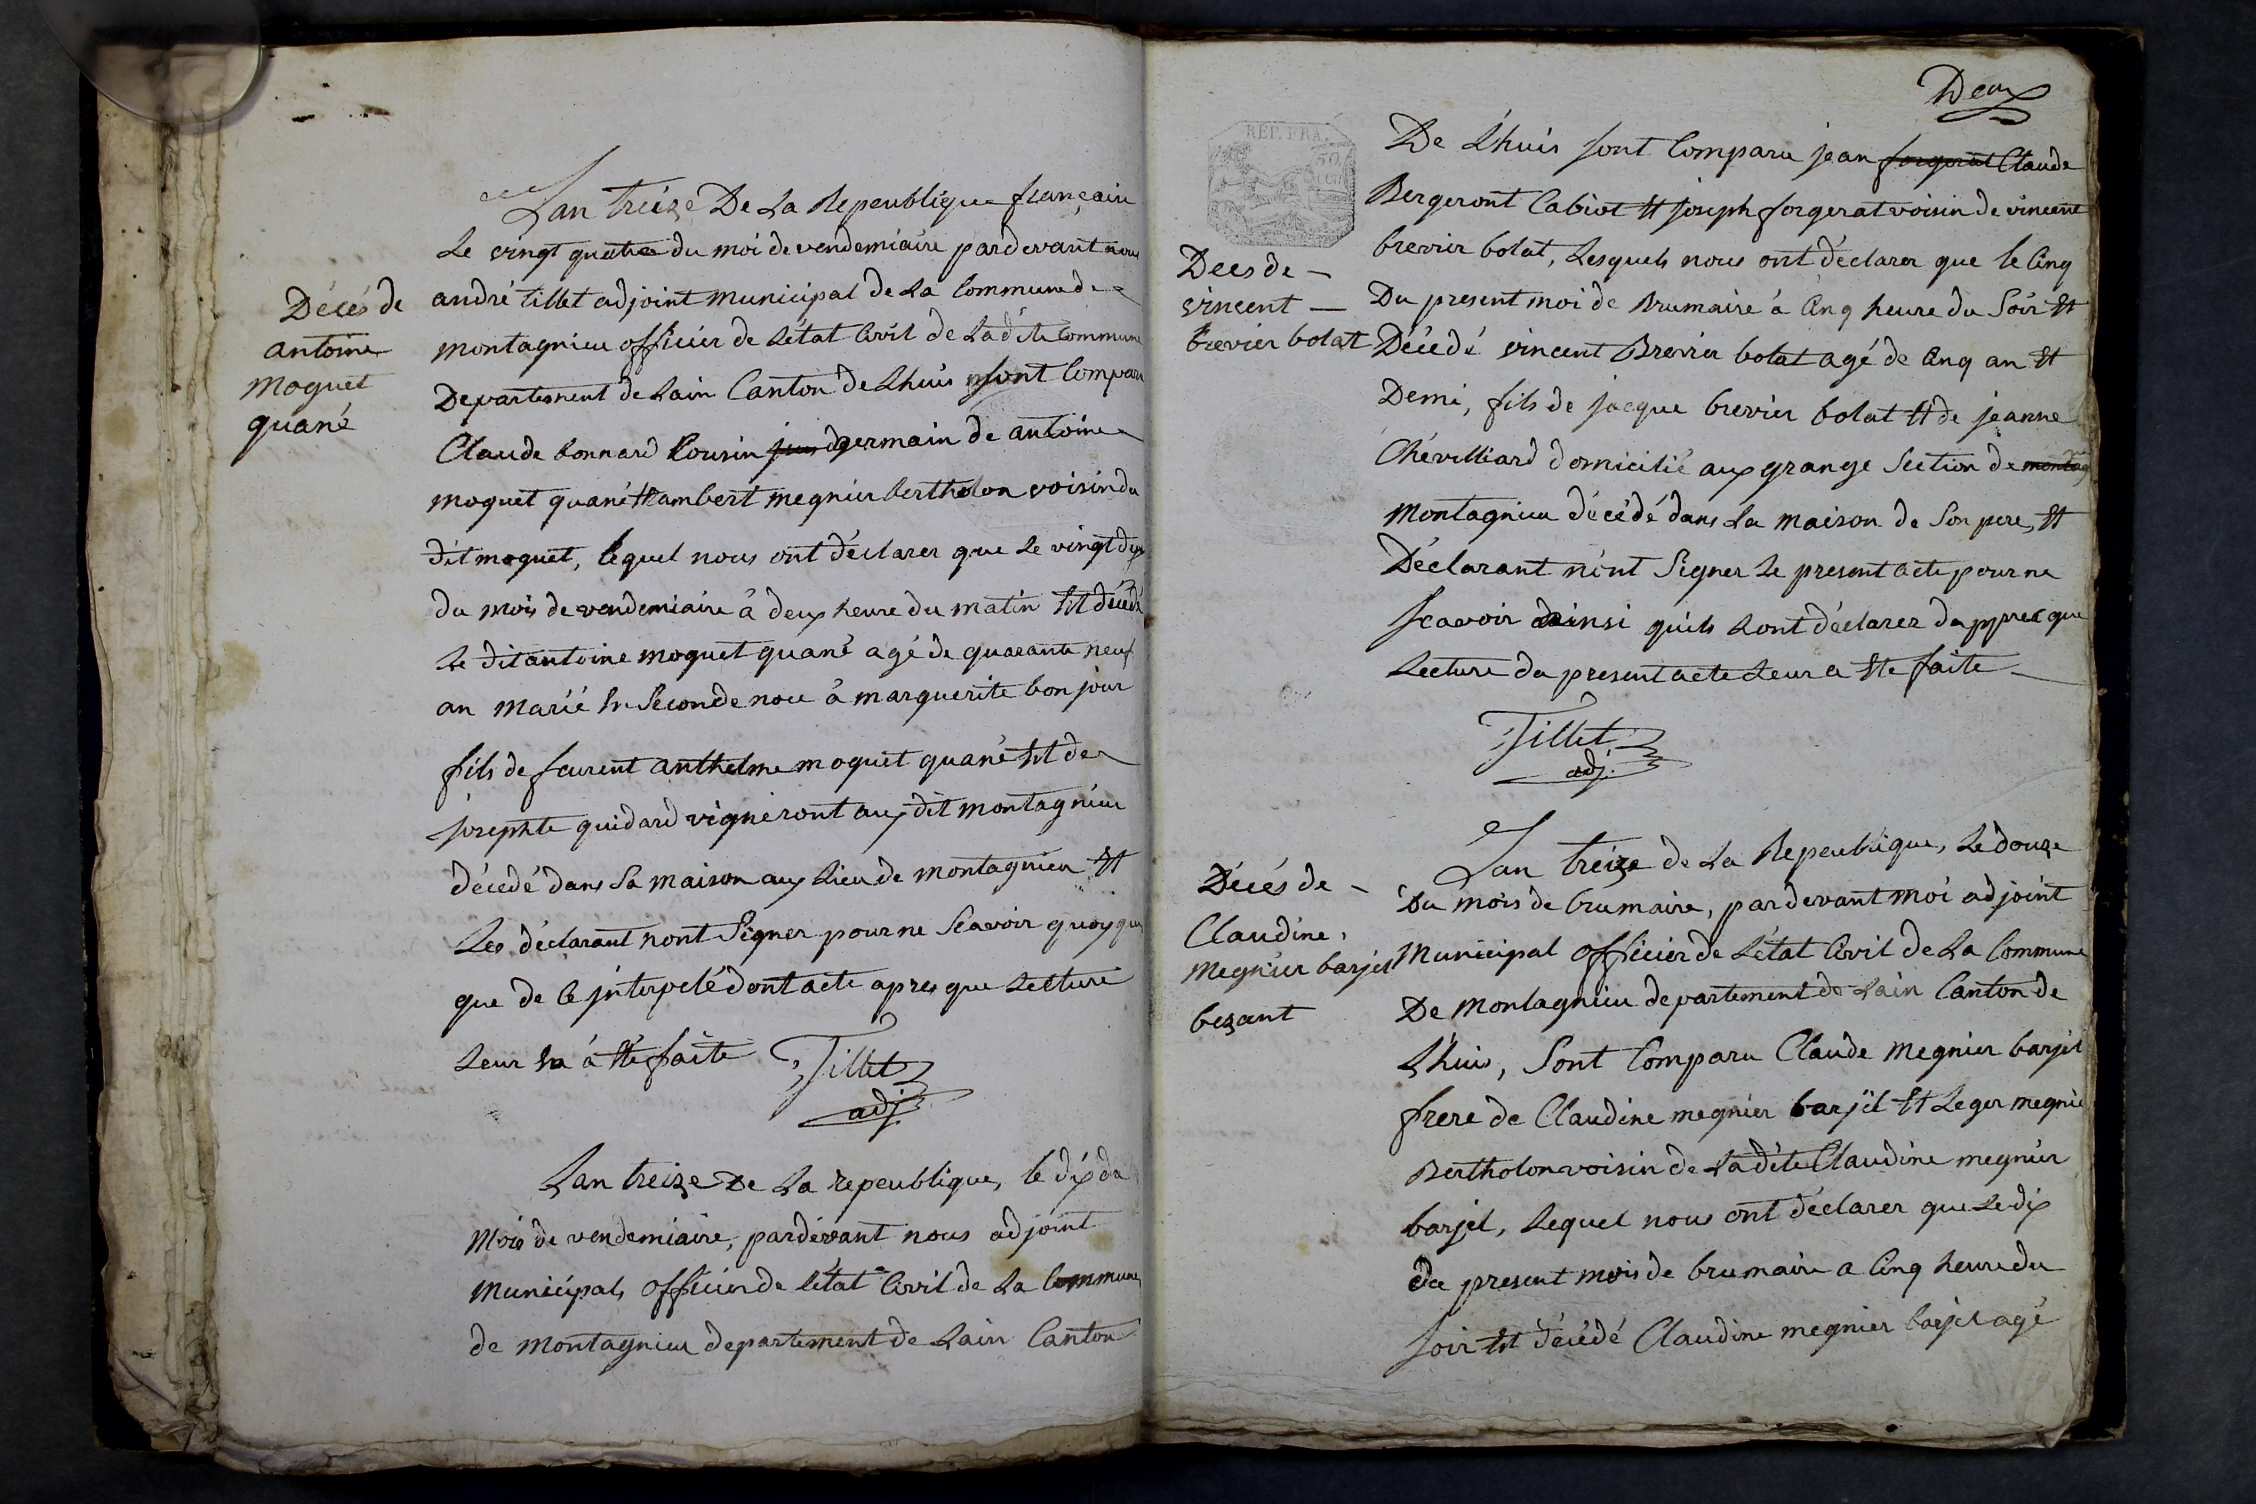 Décés de
antoine
moquet
quané
Lan treize De La Repeublique françaire
Le vingt quatre du moi de vendemiaire pardevant nous
andré tillet adjoint municipal de La Commune de
montagnieu officier de Létat Civil de Ladite Commune
Departement de Lain Canton de Lhuis sont Comparu
Claude bonnard Cousin germain de antoine
moquet quané Et ambert megnier bertholon voisin du
dit moquet, lequel nous ont déclarer que Le vingt deux
du mois de vendemiaire à deux heure du matin Est décédé
Le dit antoine moquet quané agé de quarante neuf
an marié En Seconde noce à marguerite bon jour
fils de feu anthelme moquet quané Et de
josephte guidard vigneront aux dit montagnieu
décedé dans Sa maison aux Lieu de montagnieu Et
Les déclarant nont Signer pour ne Scavoir quoy que
que de ce jnterpelé dont acte apres que Lecture
Leur En a Eté faite Tillet
adj.
Lan treize De La repeublique, le dix du
Mois de vendemiaire, pardevant nous adjoint
Municipal, officier de Létat Civil de La Commune
de Montagnieu departement de Lain Canton
Deux
REP. FRA.
De Lhuis sont Comparu jean forgerat Claude
Bergeront Cabiot Et joseph forgerat voisin de vincent
brevier bolat, Lesquels nous ont déclarer que le Cinq
Du present moi de Brumaire à Cinq heure du Soir Et
Décedé vincent Brevier bolat agé de Cinq an Et
Demi, fils de jacque brevier bolat Et de jeanne
Chévilliard domicilié aux grange Section de montag
Montagnieu décédé dans La maison de Son pere, Et
Déclarant n'ont Signer Le present acte pour ne
Scavoir ainsi quils Lont déclarez dappres que
Lecture du present acte Leur a Ete faite
Deces de
vincent
brevier bolat
Tillet
adj.
Décés de
Claudine,
Megnier barjel
bezant
Lan treize de La Repeublique, Le douze
Du mois de brumaire, pardevant moi adjoint
Municipal officier de Létat Civil de La Commune
De Montagnieu departement de Lain Canton de
Lhuis, Sont Comparu Claude Megnier barjel
frere de Claudine megnier barjel Et Leger megnie
Bertholon voisin de Ladite Claudine megnier
barjel, Lequel nous ont déclarer que Le dix
du present mois de brumaire a Cinq heure du
Soir Est décédé Claudine megnier barjel agé